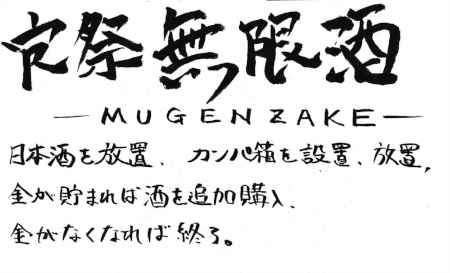 宍祭無限酒
—MUGENZAKE—
日本酒を放置、カンパ箱を設置、放置,
金が貯まれば酒を追加購入、
金がなくなれば終了。